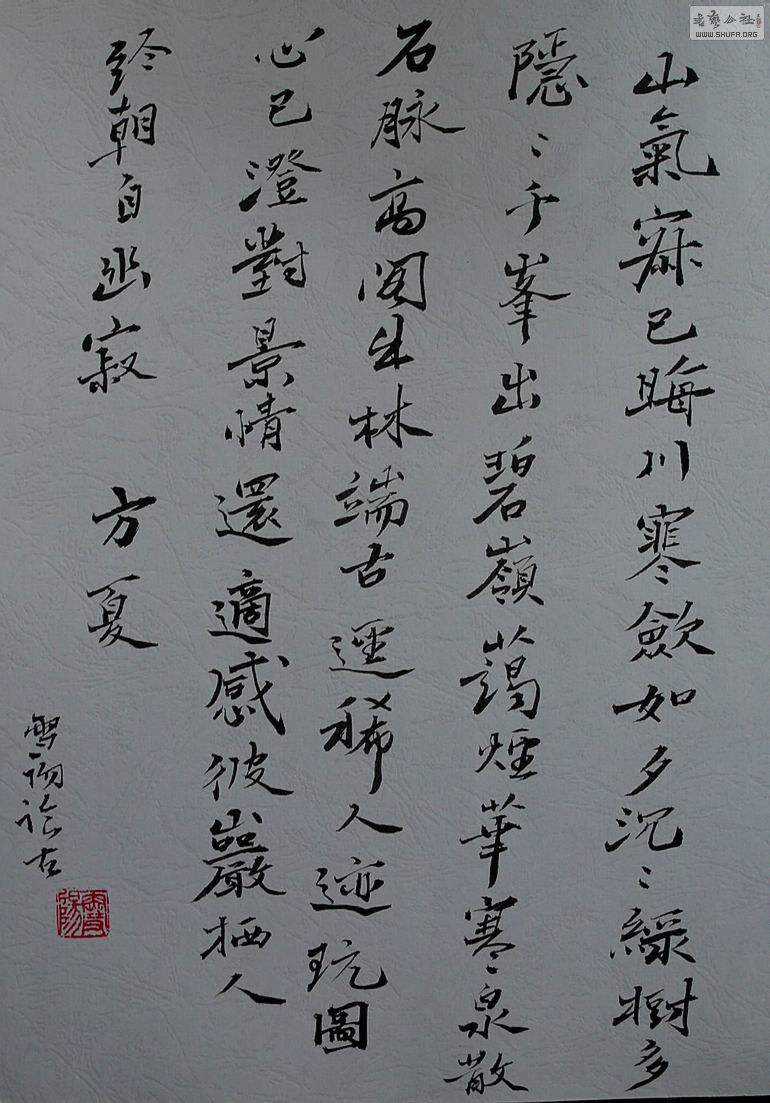 山氣寂已晦川寥斂如夕沉〻綠樹多
隱〻千峯出碧嶺藹煙華寒〻泉散
石脉高閣生林端古逕稀人迹玩圖
心已澄對景情還適感彼巖栖人
終朝自幽寂 方夏
雪
書藝公社
WWW.SHUFA.ORG